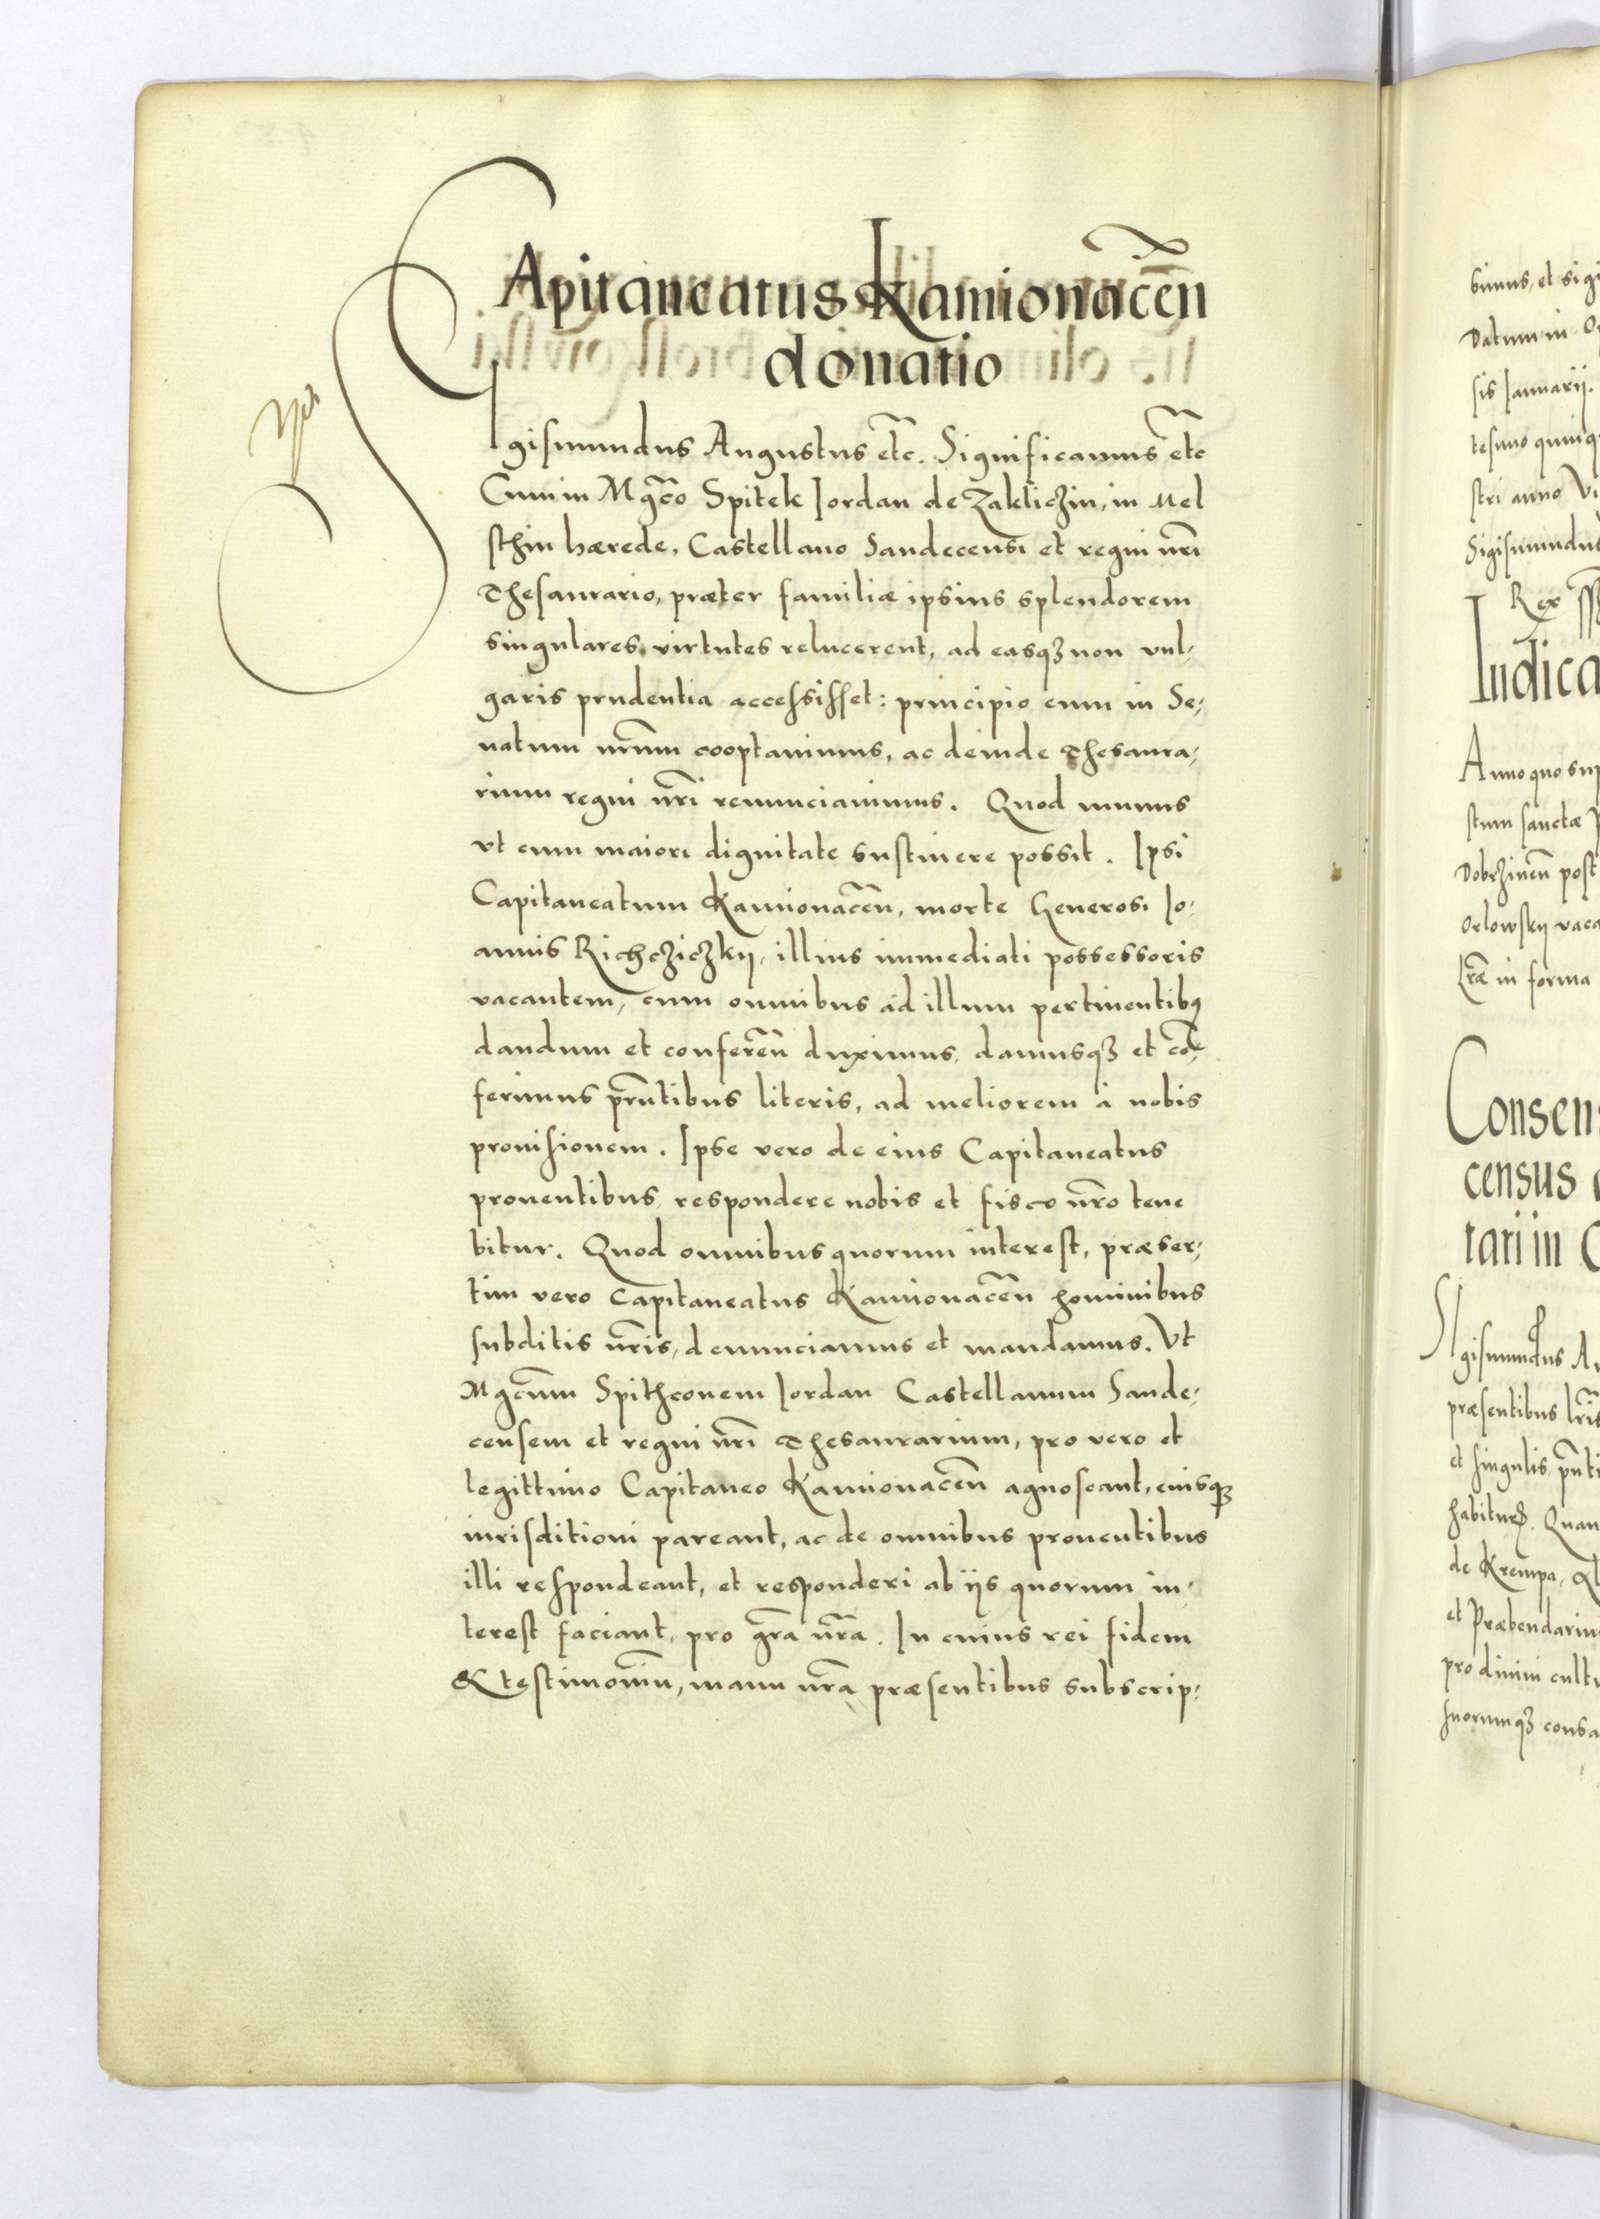 Capitaneatus Kamionacen̄
donatio
Sigismundus Augustus etc̄. Significamus etc̄
Cum in Mgc̄o Spitek Iordan de Zakliczin, in Mel
sthin hærede, Castellano Sandecensi et regni nr̄i
Thesaurario, præter familiæ ipsius splendorem
singulares virtutes relucerent, ad easqȝ non vul,
garis prudentia accessisset: principio eum in Se,
natum nrūm cooptauimus, ac deinde Thesaura,
rium regni nr̄i renunciauimus. Quod munus
vt cum maiori dignitate sustinere possit. Ipsi
Capitaneatum Kamionacēn, morte Generosi Io,
annis Richcziczkij, illius immediati possessoris
vacantem, cum omnibus ad illum pertinentibꝰ
dandum et conferēn duximus, damusqȝ et cō,
ferimus prn̄tibus literis, ad meliorem à nobis
prouisionem. Ipse vero de eius Capitaneatus
prouentibus respondere nobis et fisco nr̄o tene
bitur. Quod omnibus quorum interest, præser,
tim vero Capitaneatus Kamionacēn hominibus
subditis nr̄is, denunciamus et mandamus. Vt
Mgcūm Spithconem Iordan Castellanum Sande,
censem et regni nr̄i Thesaurarium, pro vero et
legittimo Capitaneo Kamionacēn agnoscant, eiusqȝ
iurisditioni pareant, ac de omnibus prouentibus
illi respondeant, et responderi ab ijs quorum in,
terest faciant, pro gr̄a nr̄a. In cuius rei fidem
& testimoniū, manu nr̄a præsentibus subscrip,
bimus, et sigi
Datum in
sis Ianuarij.
tesimo quinq
stri anno
Sigismundus
Rex
Iudica
Anno quo sup
stum sanctæ
Dobrzinēn post
Orlowskij vaca
Lr̄æ in forma
Consens
census
tarij in
Sigismundus
præsentibus lr̄is
et singulis, prn̄ti
habituris. Quan
de Krempa,
et Præbendarius
pro diuini cultu
suorumqȝ consa